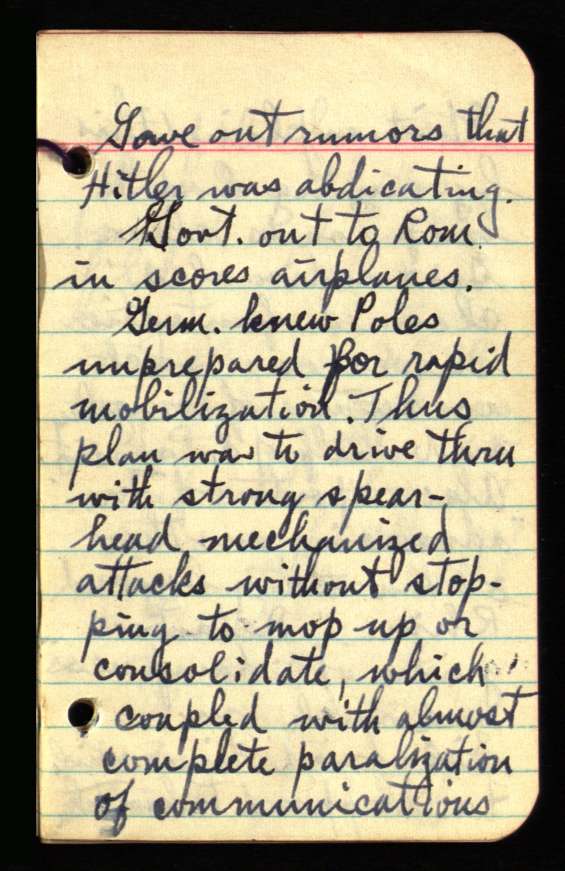 Gave out rumors that
Hitler was abdicating.
Govt. out to Rom.
in scores airplanes.
Germ. knew Poles
unprepared for rapid
mobilization. Thus
plan was to drive thru
with strong spear-
head mechanized
attacks without stop-
ping to mop up or
consolidate, which
coupled with almost
complete paralization
of communications